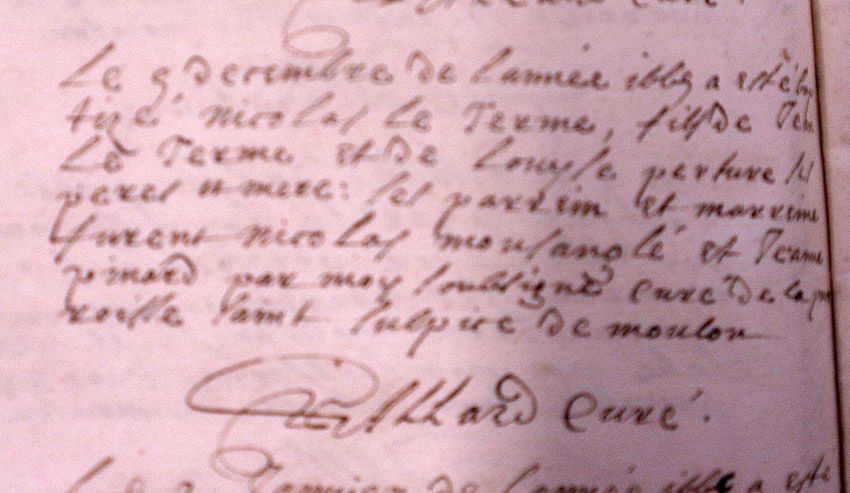 curé.
Le 9 decembre de lannéé 1665 a esté bap
tizé nicolas Le Terme, fils de Jean
Le Terme et de Louyse perture ses
peres et mere: ses parrim et marrine
furent nicolas mousanglé et Jeanne
pinard par moy soubsigné curé de la par
roisse saint sulpice de moulon
curé.
Le 2 Janvier de lannéé 1666 a esté